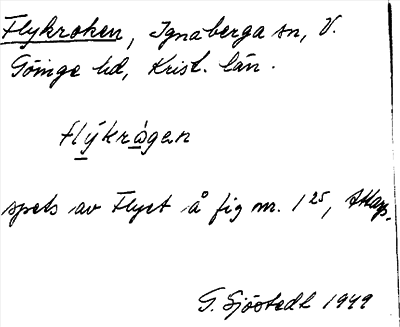 Flykroken, Ignaberga sn, V.
Göinge hd, Krist. län.
flýkràgen
spets av Flyet å fig nr. 1 25,
G. Sjöstedt 1949